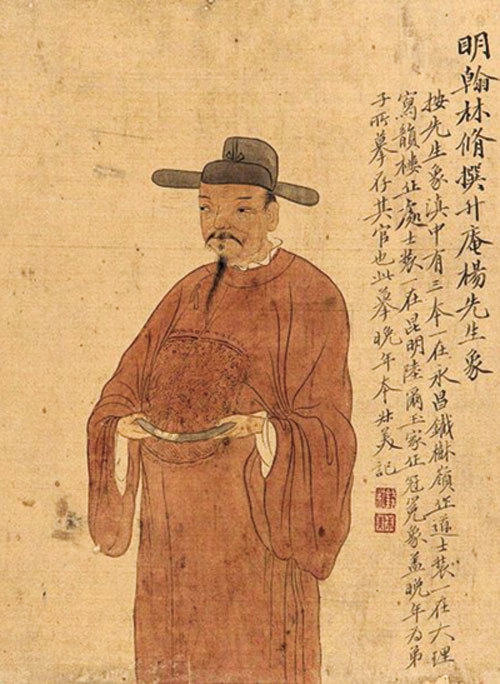 明翰林脩撰升庵楊先生象
按先生象滇中有三本一在永昌鐵樹嶺作道士裝一在大理
寫韻樓作處士裝一在昆明陸爾玉家作冠冕象蓋晚年為弟
子所摹存其官也此摹晚年本 美記